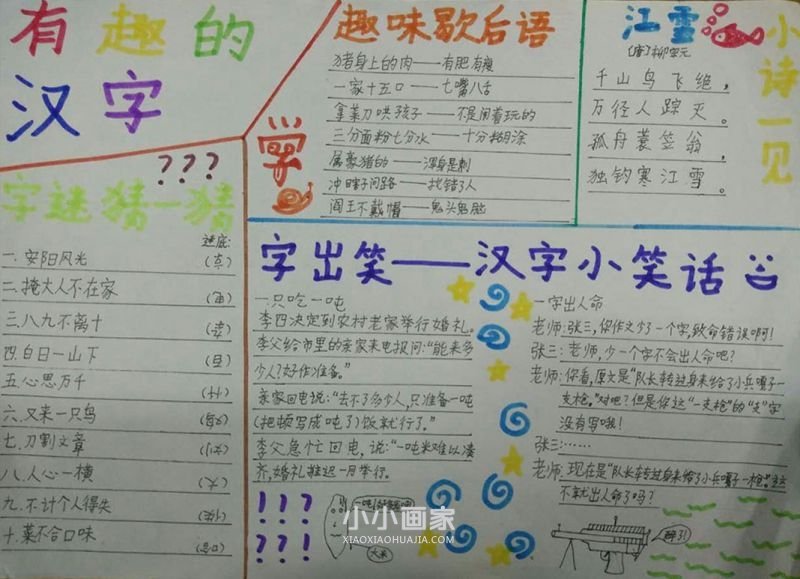 有趣的
汉字
???
字谜猜一猜
谜底:
一.安阳风光
二.掩大人不在家
三.八九不离十
四.白日一山下
五.心思万千
六.又来一只鸟
七.刀割文章
八.人心一横
九.不计个人得失
十.菜不合口味
趣味歇后语
学
猪身上的肉——有肥有瘦
一家十五口——七嘴八舌
拿菜刀哄孩子——不是闹着玩的
三分面粉七分水——十分糊涂
属豪猪的——浑身是刺
冲瞎子问路——找错了人
阎王不戴帽——鬼头鬼脑
江雪
(唐)柳宗元
千山鸟飞绝,
万径人踪灭。
孤舟蓑笠翁,
独钓寒江雪。
小诗一见
字出笑——汉字小笑话
一只吃一吨
李四决定到农村老家举行婚礼。
李父给市里的亲家来电报问:“能来多
少人?好作准备。”
亲家回电说:“去不了多少人,只准备一吨
(把顿写成吨了)饭就行了。”
李父急忙回电,说:“一吨米难以凑
齐,婚礼推迟一月举行。
!!!
???!
大米
一字出人命
老师:张三,你作文少了一个字,致命错误啊!
张三:老师,少一个字不会出人命吧?
老师:你看,原文是“队长转过身来给了小兵嘎子一
支枪。”对吧?但是你这“一支枪”的“支”字
没有写哦!
张三:……
老师:现在是“队长转过身来给了小兵嘎子一枪。”这
不就出人命了吗?
小小画家
XIAOXIAOHUAJIA.COM